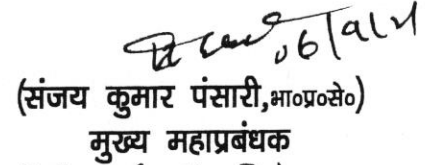 06/9/21
(संजय कुमार पंसारी,भा०प्र०से०)
मुख्य महाप्रबंधक